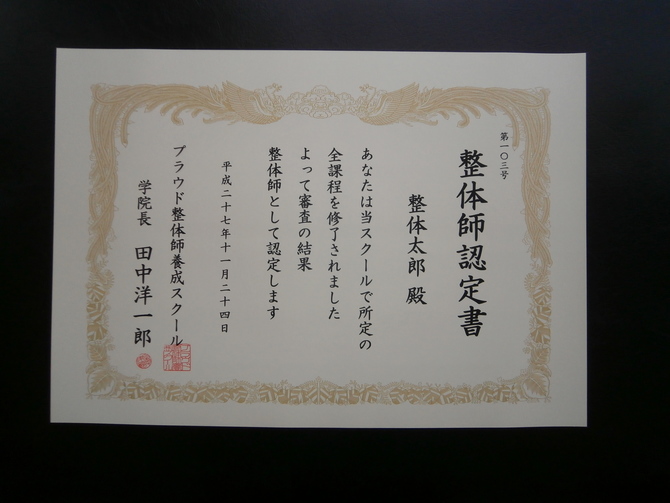 第一〇三号
整体師認定書
整体太郎 殿
あなたは当スクールで所定の
全課程を修了されました
よって審査の結果
整体師として認定します
平成二十七年十一月二十四日
プラウド整体師養成スクール
学院長 田中洋一郎